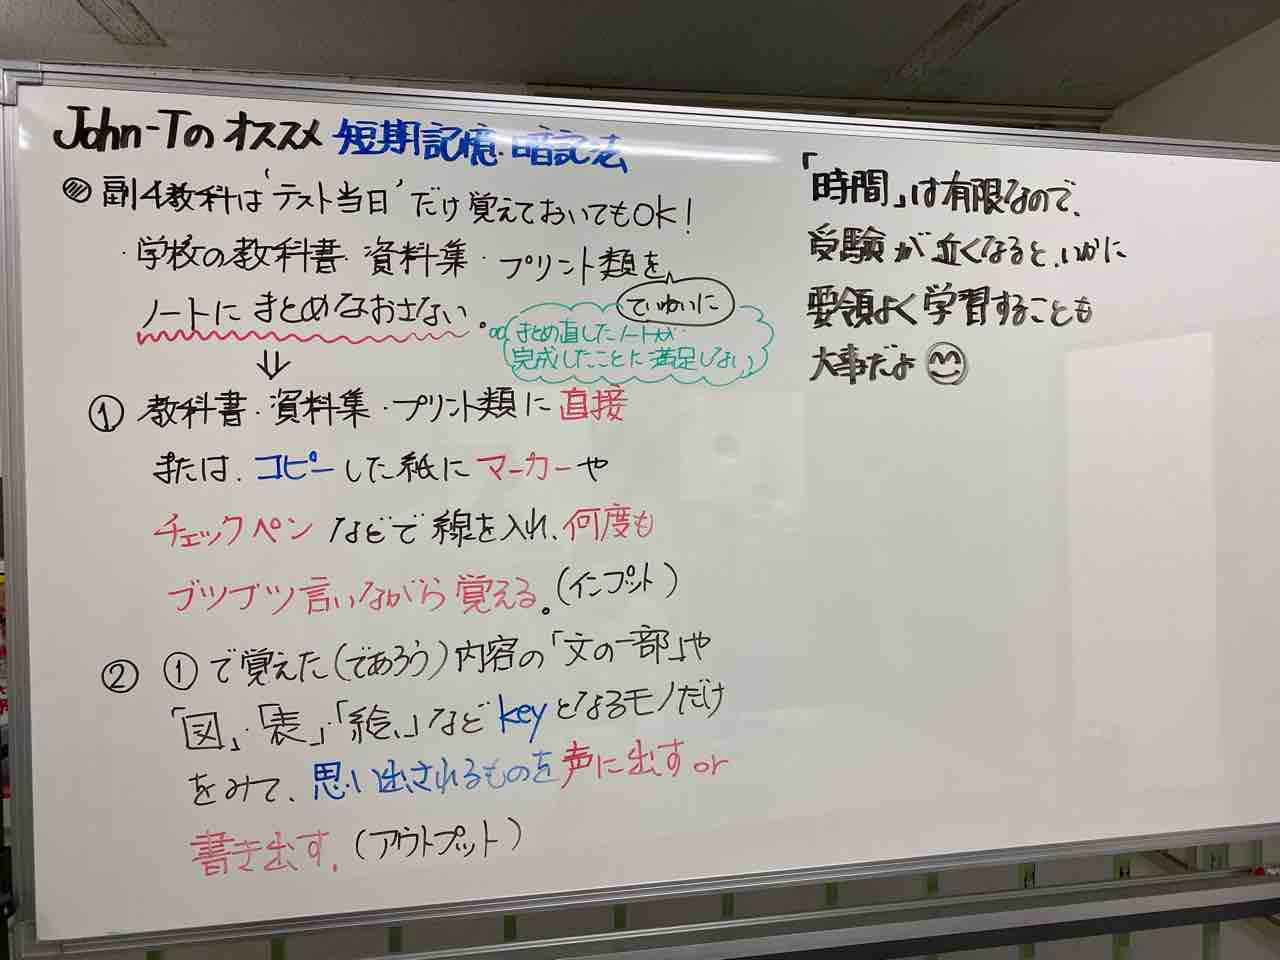 John-Tのオススメ 短期記憶・暗記法
副4教科は'テスト当日'だけ覚えておいてもOK!
・学校の教科書・資料集・プリント類を
ていねいに
ノートにまとめなおさない。
まとめ直したノートが
完成したことに満足しない
↓
① 教科書・資料集・プリント類に直接
または、コピーした紙にマーカーや
チェックペンなどで線を入れ、何度も
ブツブツ言いながら覚える。(インプット)
② ①で覚えた(であろう)内容の「文の一部」や
「図」・「表」・「絵」などkeyとなるモノだけ
をみて、思い出されるものを声に出すor
書き出す。(アウトプット)
「時間」は有限なので、
受験が近くなると、いかに
要領よく学習することも
大事だよ